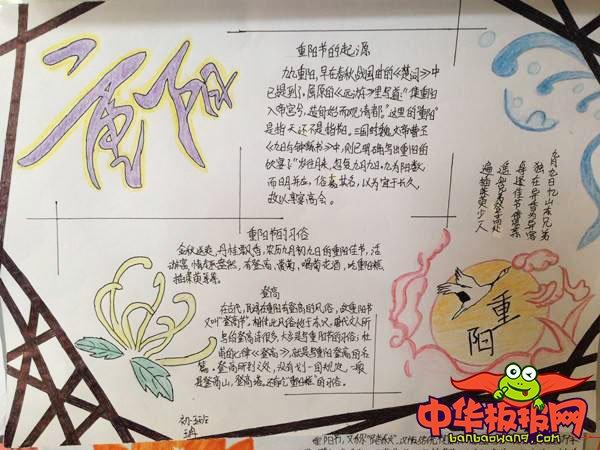 重阳
重阳节的起源
九九重阳，早在春秋战国时的《楚词》中
已提到了，屈原的《远游》里写道："集重阳
入帝宫兮，造旬始而观清都"这里的"重阳"
是指天，还不是指节日。三国时魏文帝曹丕
《九日与钟繇书》中，则已明确写出重阳的
饮宴了："岁往月来，忽复九月九日。九为阳数，
而日月并应，俗嘉其名，以为宜于长久，
故以享宴高会。
九月九日忆山东兄弟
独在异乡为异客
每逢佳节倍思亲
遥知兄弟登高处
遍插茱萸少一人
重阳节的习俗
金秋送爽，丹桂飘香，农历九月初九日的重阳佳节，活
动丰富，情趣盎然，有登高、赏菊、喝菊花酒、吃重阳糕、
插茱萸等等。
登高
在古代，民间在重阳有登高的风俗，故重阳节
又叫"登高节"。相传此风俗始于东汉。唐代文人所
写的登高诗很多，大多是写重阳节的习俗；杜
甫的七律《登高》，就是写重阳登高的名
篇。登高所到之处，没有划一的规定，一般
是登高山、登高塔。还有吃"重阳糕"的习俗。
重阳
中华板报网
banbaowang.com